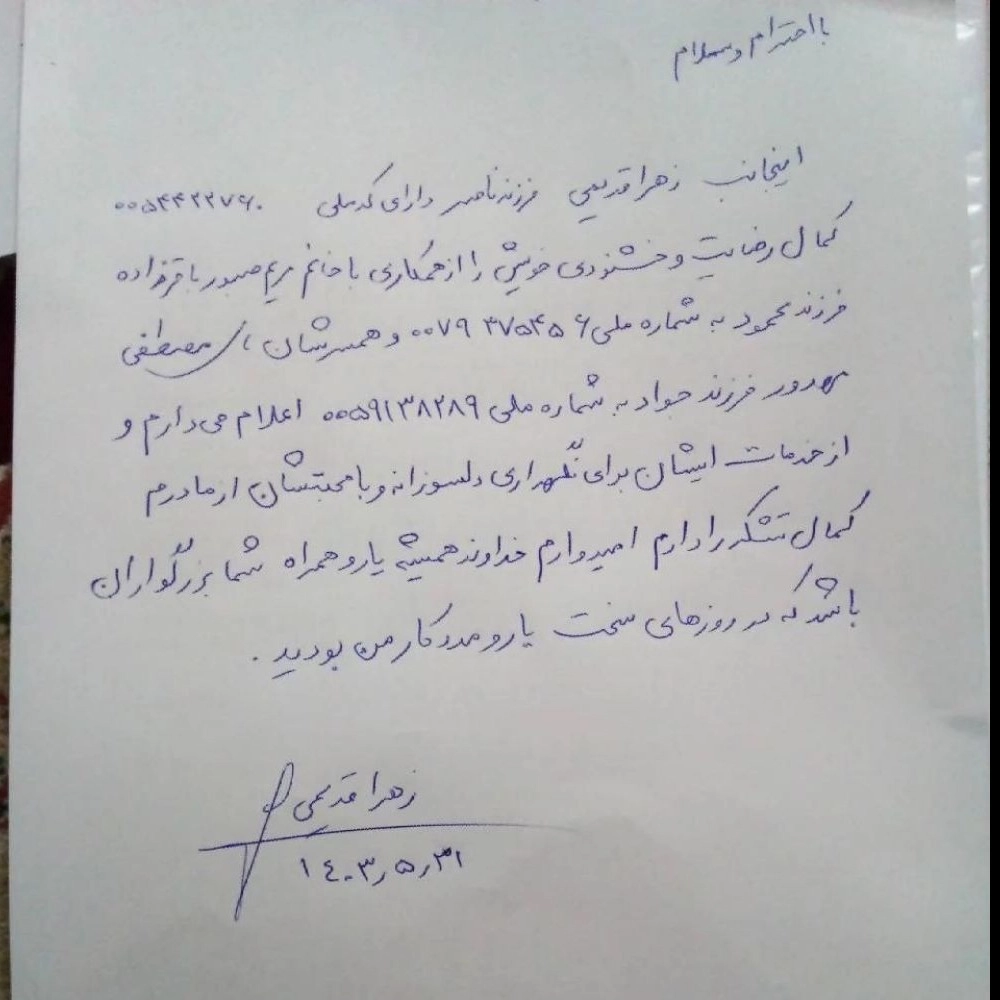 با احترام و سلام
اینجانب زهرا قدیمی فرزند ناصر دارای کد ملی ۰۰۵۴۴۲۲۷۶۰
کمال رضایت و خشنودی خویش را از همکاری با خانم مریم صبور باقرزاده
فرزند محمود به شماره ملی ۰۰۷۹۳۷۵۴۵۶ و همسرشان آقای مصطفی
فرزند جواد به شماره ملی ۰۰۵۹۱۳۸۲۸۹ اعلام می دارم و
از خدمات ایشان برای نگهداری دلسوزانه و با محبتشان از مادرم
کمال تشکر را دارم امیدوارم خداوند همیشه یار و همراه شما بزرگواران
باشد که در روزهای سخت یار و مددکار من بودید.
زهرا قدیمی
۱۴۰۳٫۵٫۳۱